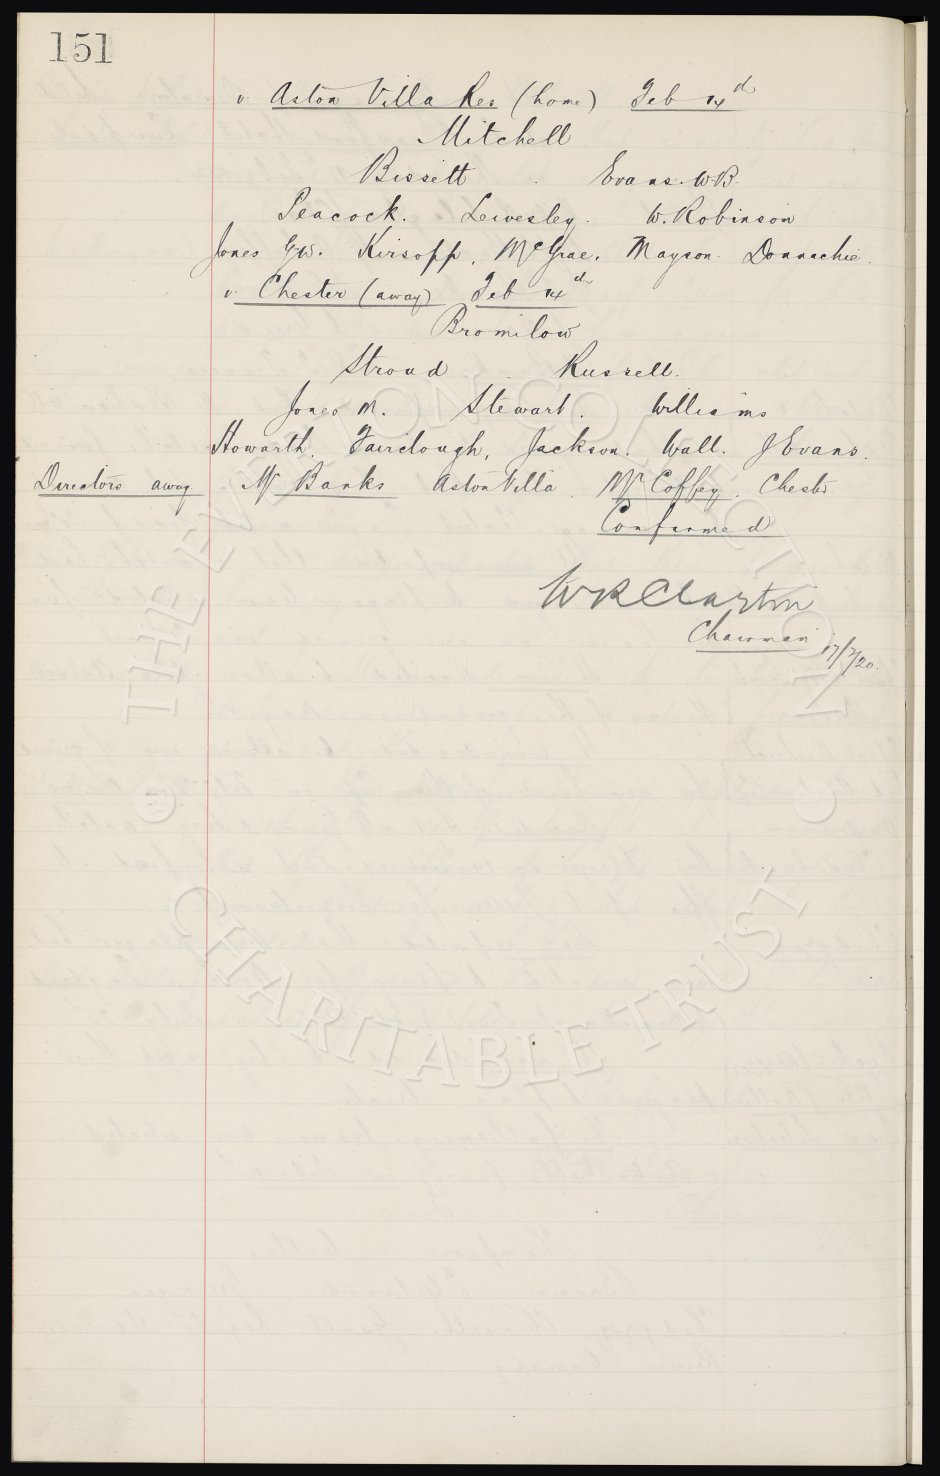 151
v. Aston Villa Res (home) Feb 14th
Mitchell
Bissett. Evans. W.B.
Peacock. Lewesley. W. Robinson
Jones G.W. Kirsopp, McGrae, Mayson. Donnachie.
v. Chester (away) Feb 14th
Bromilow
Stroud. Russell.
Jones M. Stewart. Williams
Howarth, Fairclough, Jackson. Wall. J Evans.
Directors away. Mr Banks Aston Villa. Mr Coffey. Chester
Confirmed
W R Clayton
Chairman 17/2/20.
THE EVERTON COLLECTION
CHARITABLE TRUST